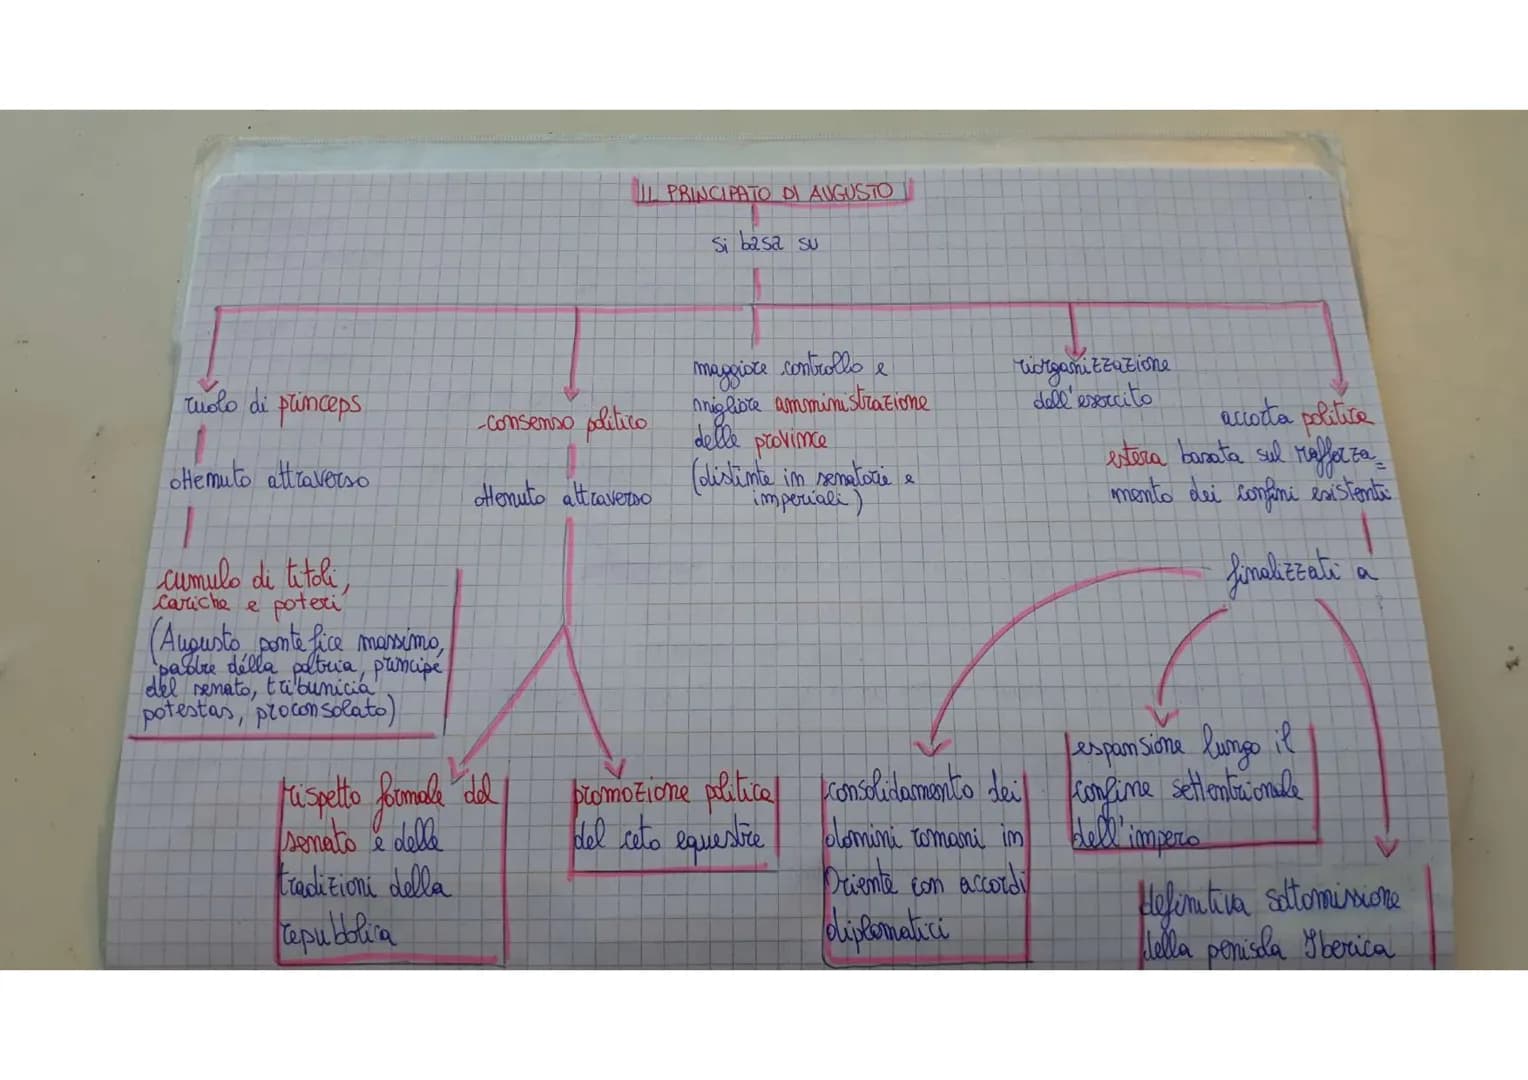 IL PRINCIPATO DI AUGUSTO
si basa su
ruolo di princeps
ottenuto attraverso
cumulo di titoli,
cariche e poteri
(Augusto pontefice massimo,
padre della patria, principe
del senato, tribunicia
potestas, proconsolato)
-consenso politico
ottenuto attraverso
rispetto formale del
senato e delle
tradizioni della
repubblica
promozione politica
del ceto equestre
maggiore controllo e
migliore amministrazione
delle province
(distinte in senatorie e
imperiali)
riorganizzazione
dell'esercito
accorta politica
estera basata sul rafforza=
mento dei confini esistenti
finalizzati a
consolidamento dei
domini romani in
Oriente con accordi
diplomatici
espansione lungo il
confine settentrionale
dell'impero
definitiva sottomissione
della penisola Iberica